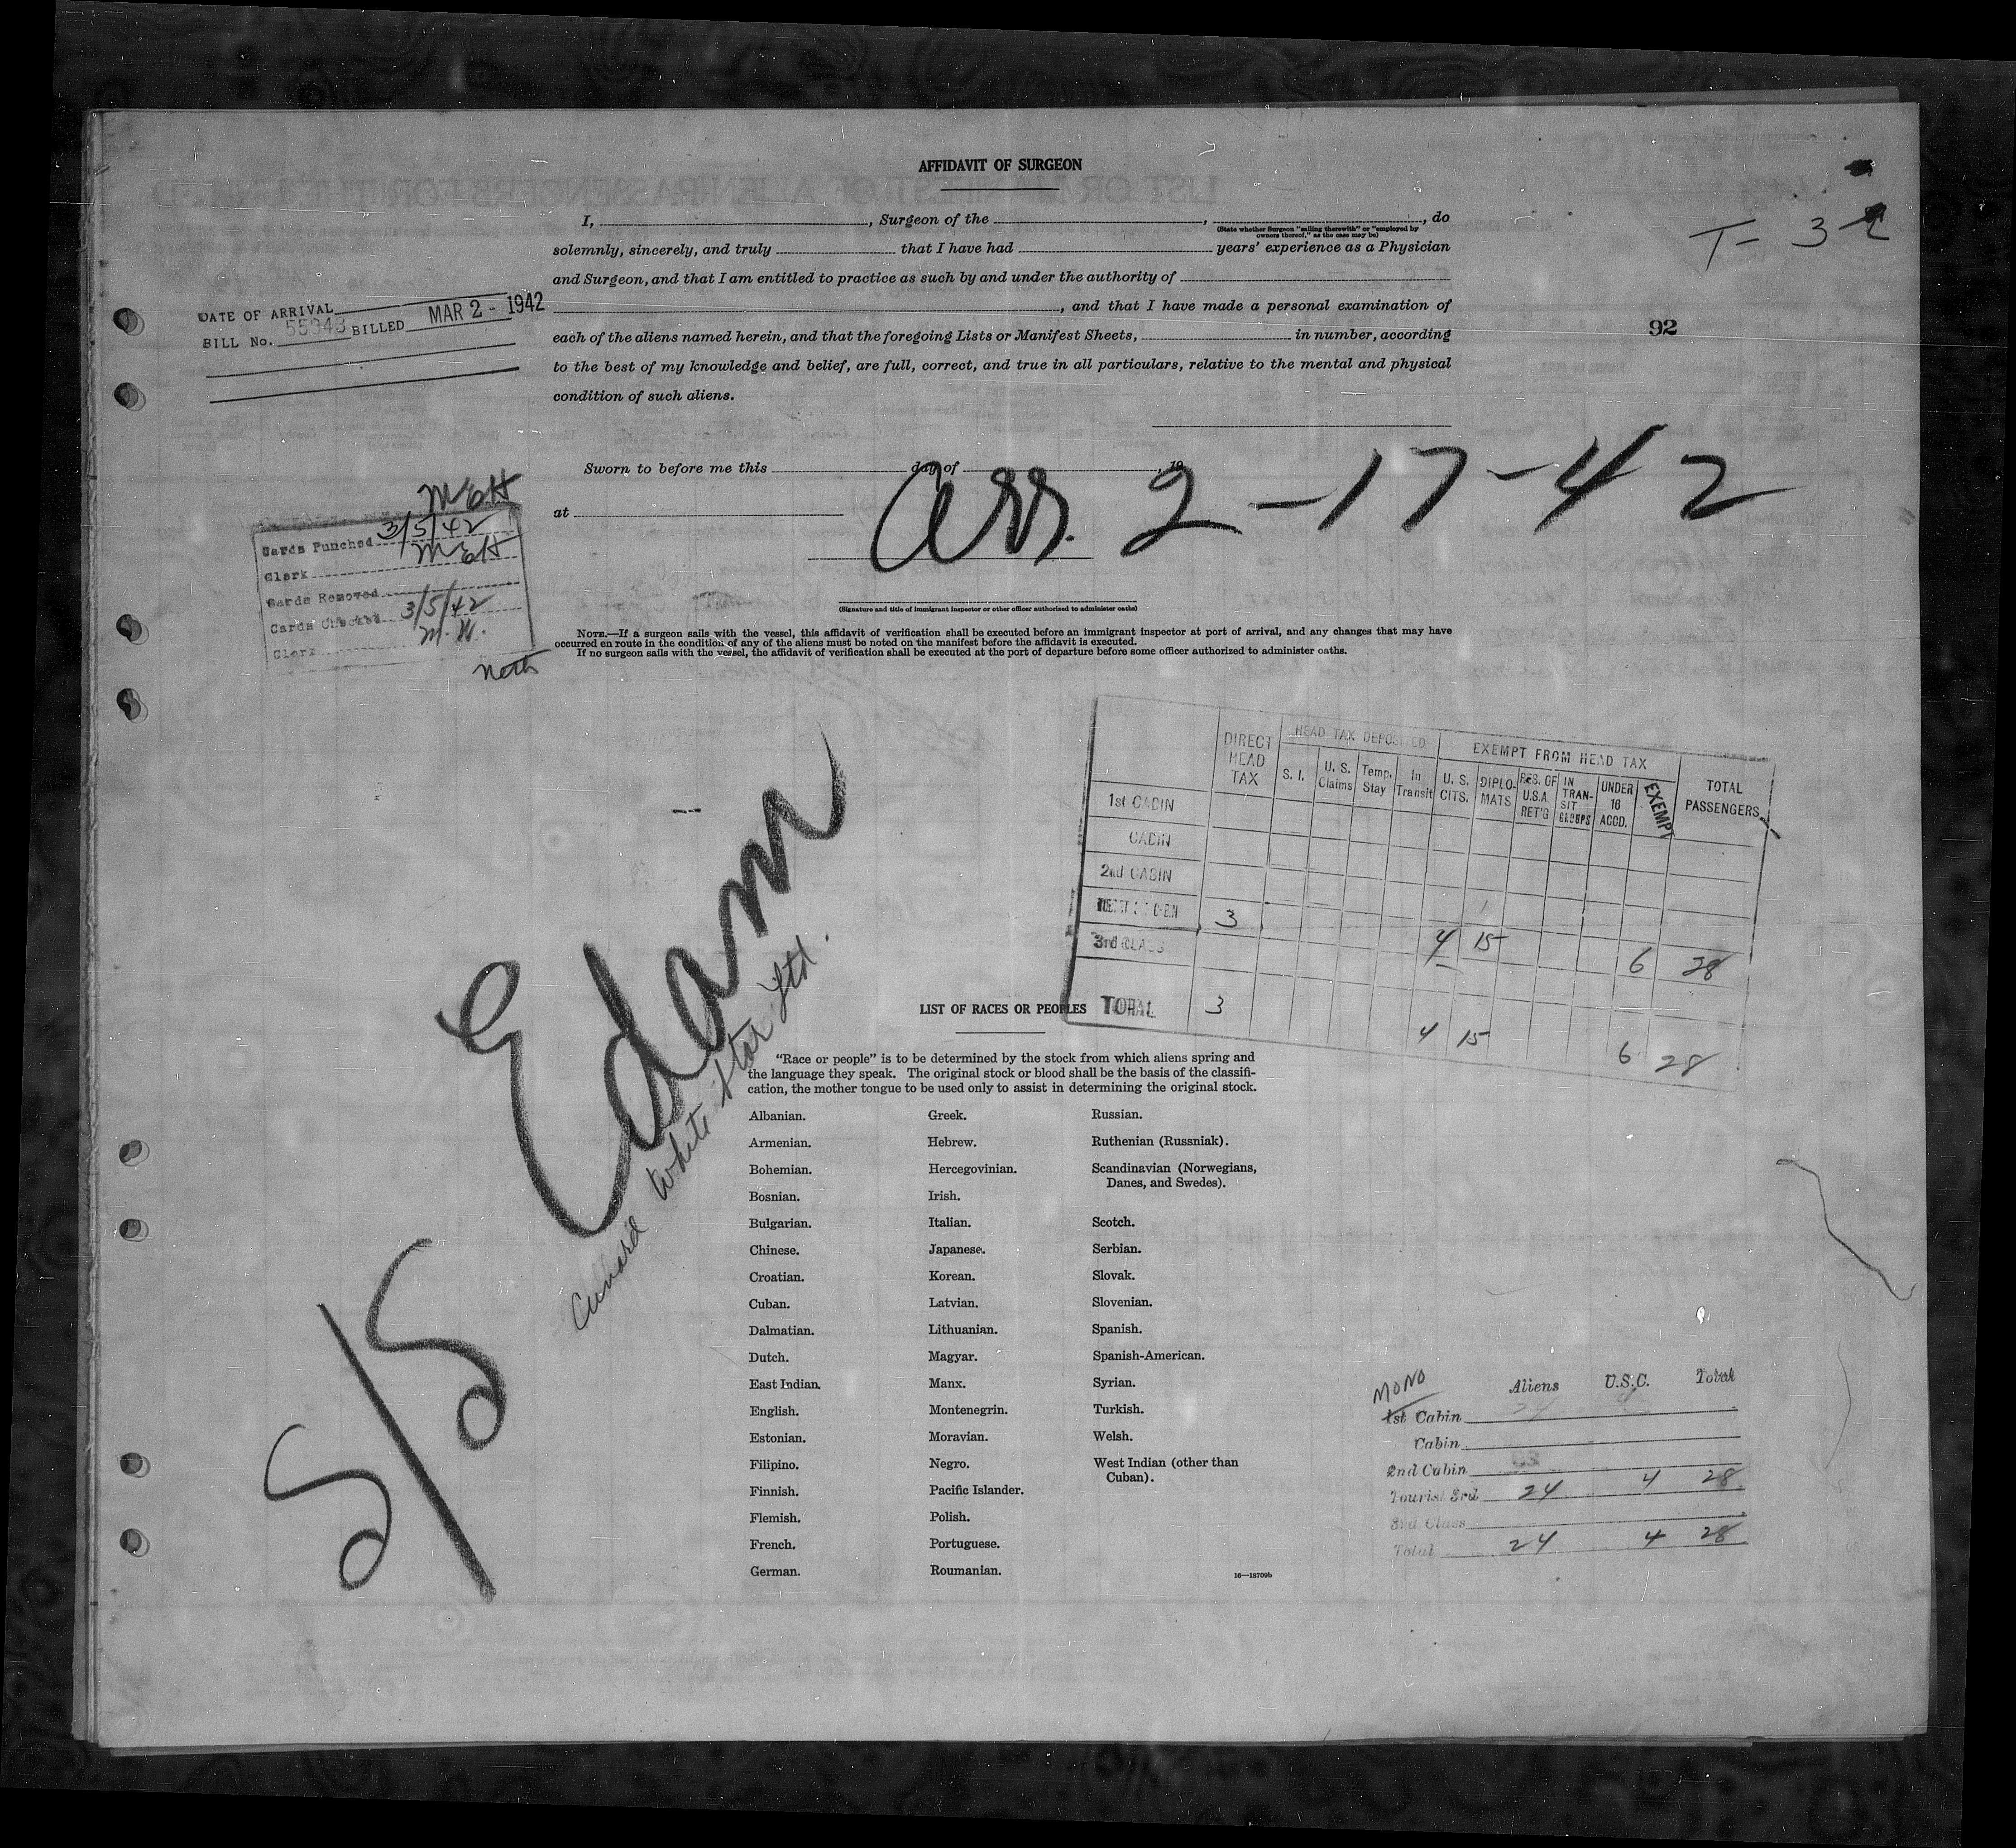 AFFIDAVIT OF SURGEON
T- 3-
I, , Surgeon of the , , do
(State whether Surgeon "sailing therewith" or "employed by
owners thereof," as the case may be)
solemnly, sincerely, and truly that I have had years' experience as a Physician
and Surgeon, and that I am entitled to practice as such by and under the authority of
, and that I have made a personal examination of
each of the aliens named herein, and that the foregoing Lists or Manifest Sheets, in number, according
to the best of my knowledge and belief, are full, correct, and true in all particulars, relative to the mental and physical
condition of such aliens.
DATE OF ARRIVAL
BILL No. 55943 BILLED MAR 2 - 1942
92
Sworn to before me this day of , 19
at
Arr. 2-17-42
(Signature and title of immigrant inspector or other officer authorized to administer oaths)
MEH
Cards Punched 3/5/42
Clerk MEH
Cards Removed
Cards Checked 3/5/42
Clerk M.H.
NOTE.—If a surgeon sails with the vessel, this affidavit of verification shall be executed before an immigrant inspector at port of arrival, and any changes that may have
occurred en route in the condition of any of the aliens must be noted on the manifest before the affidavit is executed.
If no surgeon sails with the vessel, the affidavit of verification shall be executed at the port of departure before some officer authorized to administer oaths.
DIRECT HEAD TAX
HEAD TAX DEPOSITED
S. I. U. S. Claims Temp. Stay In Transit
EXEMPT FROM HEAD TAX
U. S. CITS. DIPLO-MATS RES. OF U.S.A. RET'G IN TRAN-SIT GROUPS UNDER 16 ACCD. EXEMPT
TOTAL PASSENGERS
1st CABIN
CABIN
2nd CABIN
3
3rd CLASS 4 15 6 28
TOTAL 3 4 15 6 28
S/S Edam
Cunard White Star Ltd.
LIST OF RACES OR PEOPLES
"Race or people" is to be determined by the stock from which aliens spring and
the language they speak. The original stock or blood shall be the basis of the classifi-
cation, the mother tongue to be used only to assist in determining the original stock.
Albanian.
Armenian.
Bohemian.
Bosnian.
Bulgarian.
Chinese.
Croatian.
Cuban.
Dalmatian.
Dutch.
East Indian.
English.
Estonian.
Filipino.
Finnish.
Flemish.
French.
German.
Greek.
Hebrew.
Hercegovinian.
Irish.
Italian.
Japanese.
Korean.
Latvian.
Lithuanian.
Magyar.
Manx.
Montenegrin.
Moravian.
Negro.
Pacific Islander.
Polish.
Portuguese.
Roumanian.
Russian.
Ruthenian (Russniak).
Scandinavian (Norwegians,
Danes, and Swedes).
Scotch.
Serbian.
Slovak.
Slovenian.
Spanish.
Spanish-American.
Syrian.
Turkish.
Welsh.
West Indian (other than
Cuban).
16—18709b
MONO
Aliens U.S.C. Total
1st Cabin
Cabin
2nd Cabin
Tourist 3rd 24 4 28
3rd Class
Total 24 4 28